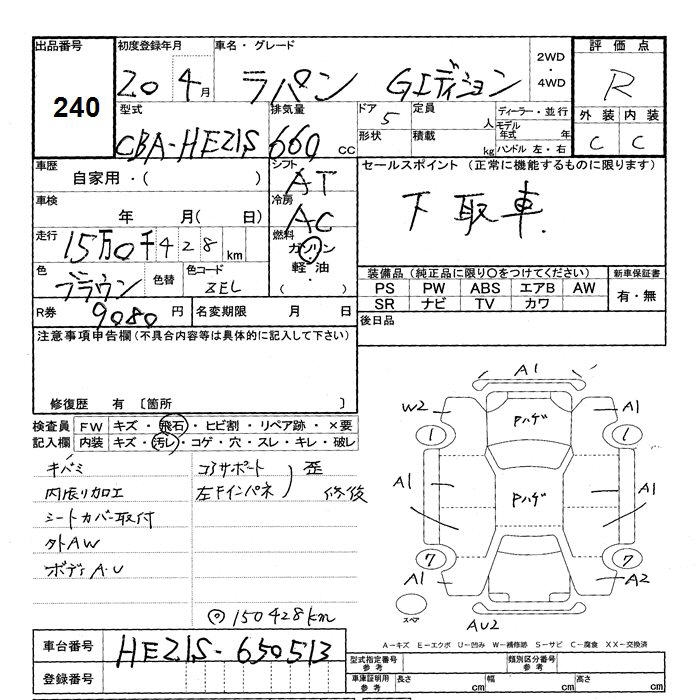 出品番号 240
初度登録年月 20年 4月
車名・グレード ラパン Gエディション
2WD・4WD
評価点 R
外装 C 内装 C
型式 CBA-HE21S
排気量 660 CC
ドア 5
形状
定員 人
積載 kg
ディーラー・並行
モデル年式 年
ハンドル 左・右
車歴 自家用・( )
シフト AT
車検 年 月(日)
冷房 AC
走行 15万0千428km
燃料 ガソリン・軽油・( )
色 ブラウン 色替
色コード ZEL
R券 9080円
名変期限 月 日
セールスポイント (正常に機能するものに限ります)
下取車
装備品(純正品に限り○をつけてください)
新車保証書 有・無
PS PW ABS エアB AW
SR ナビ TV カワ
後日品
注意事項申告欄(不具合内容等は具体的に記入して下さい)
修復歴 有 [箇所
検査員記入欄
FW キズ・飛石・ヒビ割・リペア跡・×要
内装 キズ・汚レ・コゲ・穴・スレ・キレ・破レ
キバミ
内張り加工
シートカバー取付
外AW
ボディA・U
コアサポート
左Fインパネ
歪
修復
◎150428km
車台番号 HE21S-650513
登録番号
A1
W2
A1
Pハゲ
1
1
A1
A1
Pハゲ
7
7
A1
A2
スペア
AU2
A―キズ E―エクボ U―凹み W―補修跡 S―サビ C―腐食 XX―交換済
型式指定番号 参考
類別区分番号 参考
車庫証明用 参考
長さ cm
幅 cm
高さ cm